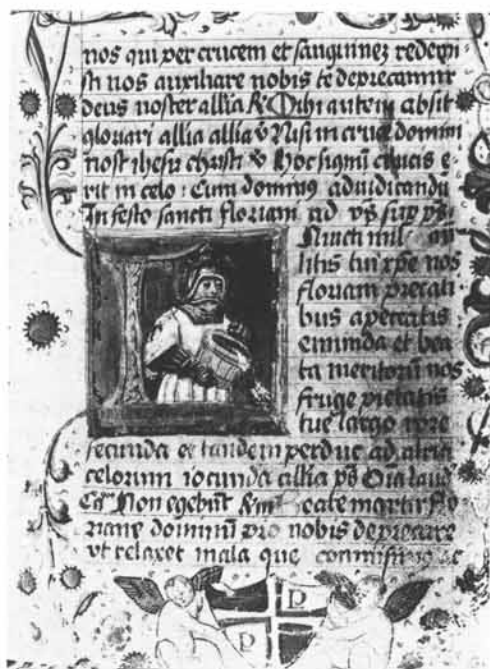 nos qui per crucem et sanguinez redemi-
sti nos auxiliare nobis te deprecamur
deus noster allia R Mihi autem absit
gloriari allia allia v Nisi in cruce domini
nostri ihesu christi v Hoc signũ crucis e-
rit in celo : Cum dominus ad iudicandũ
In festo sancti floriani ad vp̄s sup ps̄
Inuicti
litis tui xp̄e nos
floriani precati
bus a peccatis
emunda et bea
ta meritorũ nos
fruge pietatis
tue largo rore
fecunda et tandem perduc ad atria
celorum iocunda allia ps̄ Oĩa laud
Cap Non egebũt martir flo
riane dominũ pro nobis deprecare
vt relaxet mala que commisimus
P P